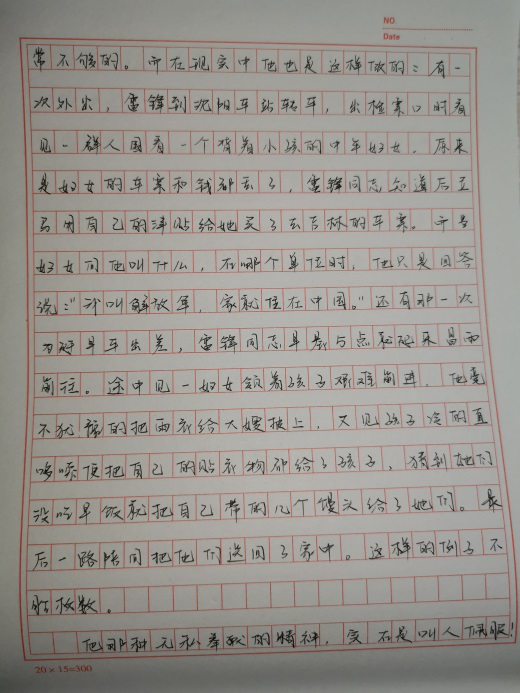 NO.
Date
常不够的。而在现实中他也是这样做的：有一
次外出，雷锋到沈阳车站转车，出检票口时看
见一群人围着一个背着小孩的中年妇女，原来
是妇女的车票和钱都丢了，雷锋同志知道后立
马用自己的津贴给她买了去吉林的车票。而当
妇女问他叫什么，在哪个单位时，他只是回答
说："我叫解放军，家就住在中国。"还有那一次
为赶早车出差，雷锋同志早晨五点就起来冒雨
前往。途中见一妇女领着孩子艰难前进，他毫
不犹豫的把雨衣给大嫂披上，又见孩子冷的直
哆嗦便把自己的贴衣物都给了孩子，猜到她们
没吃早饭就把自己带的几个馒头给了她们。最
后一路陪同把他们送回了家中。这样的例子不
胜枚数。
他那种无私奉献的精神，实在是叫人佩服！
20×15=300